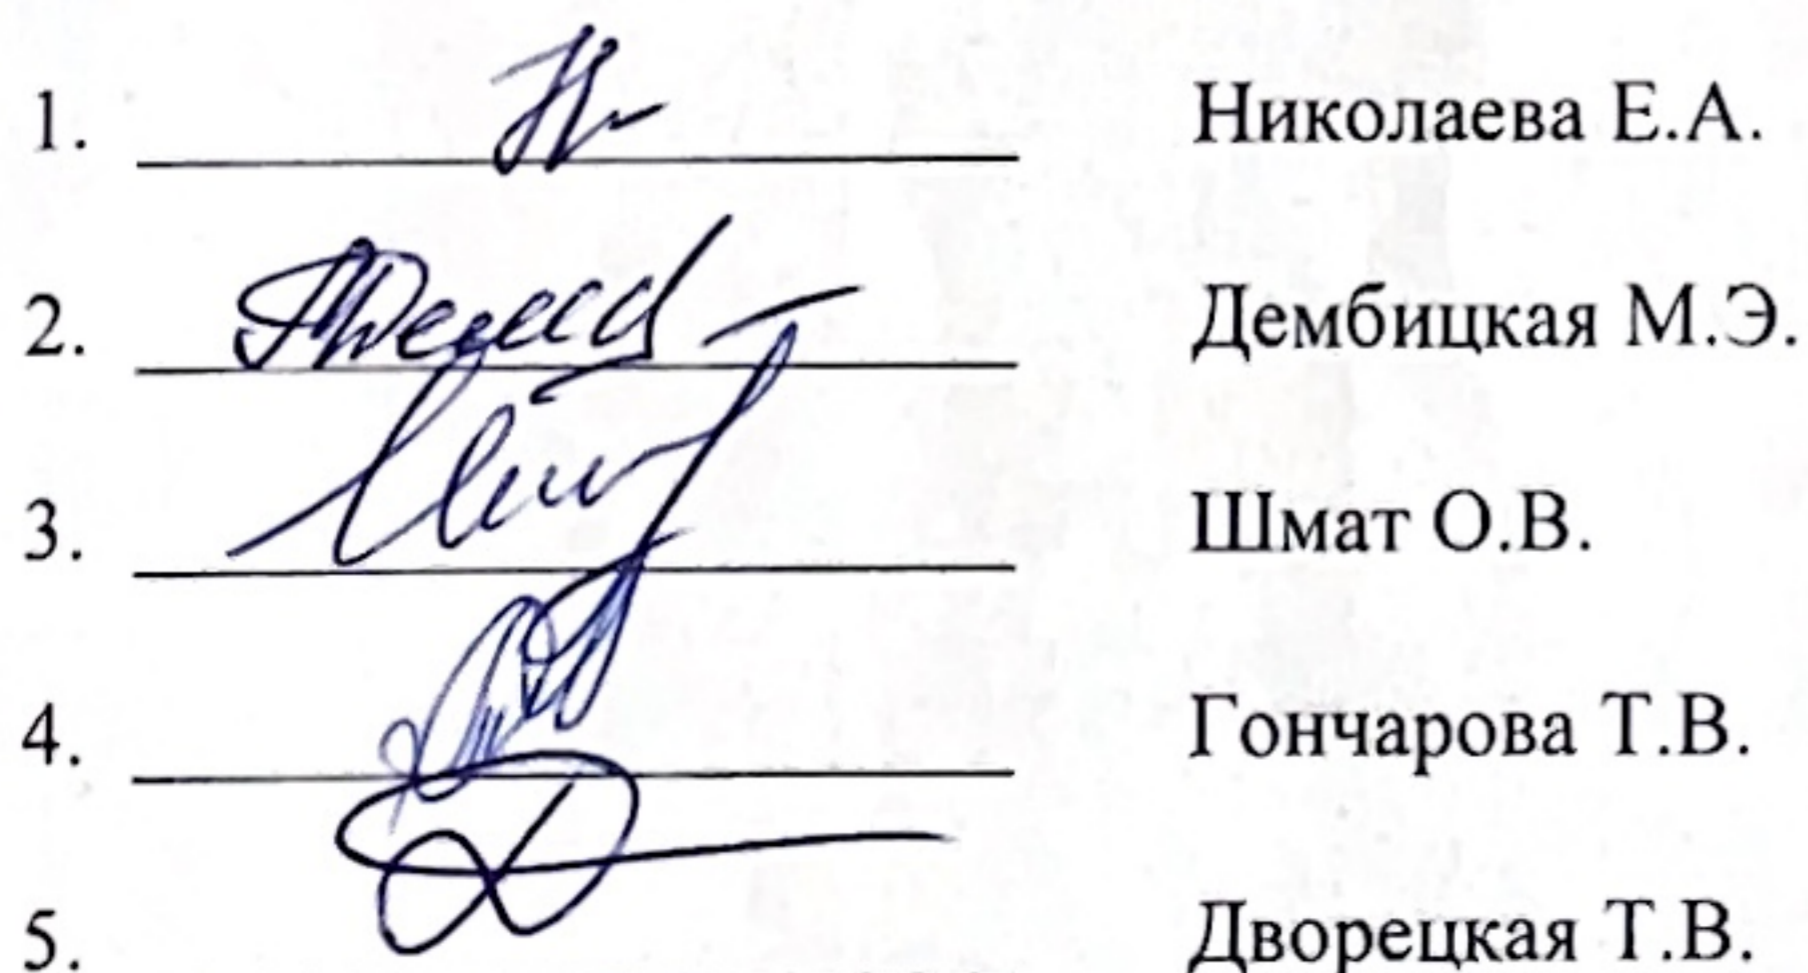 1. Николаева Е.А.
2. Дембицкая М.Э.
3. Шмат О.В.
4. Гончарова Т.В.
5. Дворецкая Т.В.